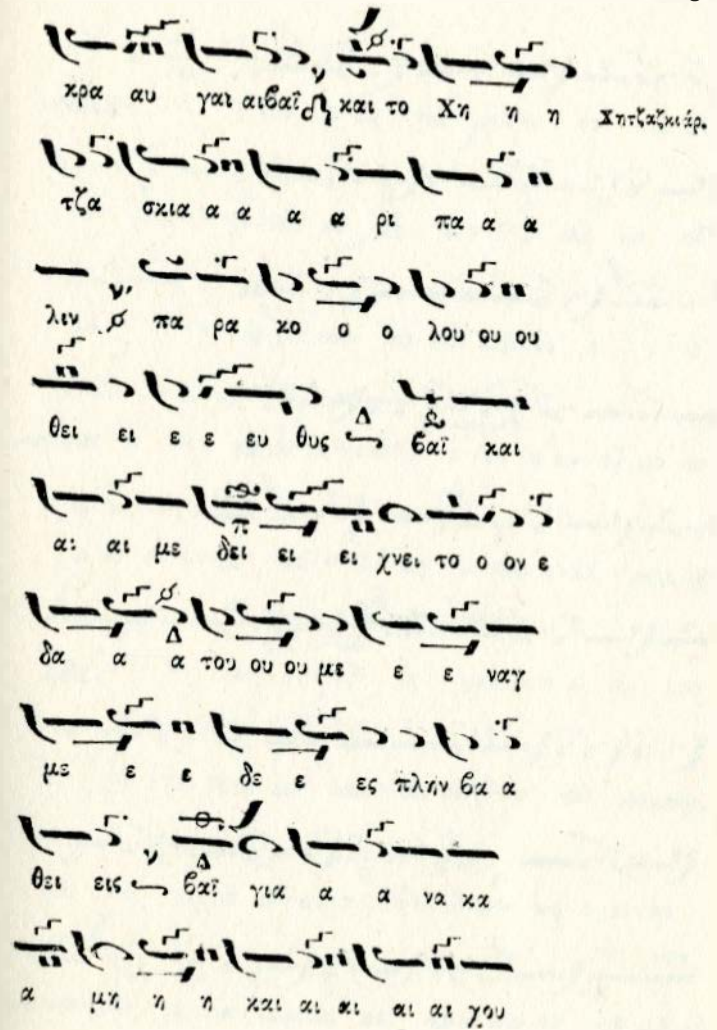 κρα αυ γαι αιβαϊ και το Χη η η Χητζαζκιάρ.
τζα σκια α α α α ρι πα α α
λιν πα ρα κο ο ο λου ου ου
θει ει ε ε ευ θυς Δ βαϊ και
αι αι με δει ει ει χνει το ο ον ε
π
δα α α του ου ου με ε ε ναγ
Δ
με ε ε δε ε ες πλην βα α
θει εις βαϊ για α α να κα
Δ
α μη η η και αι αι αι αι χου